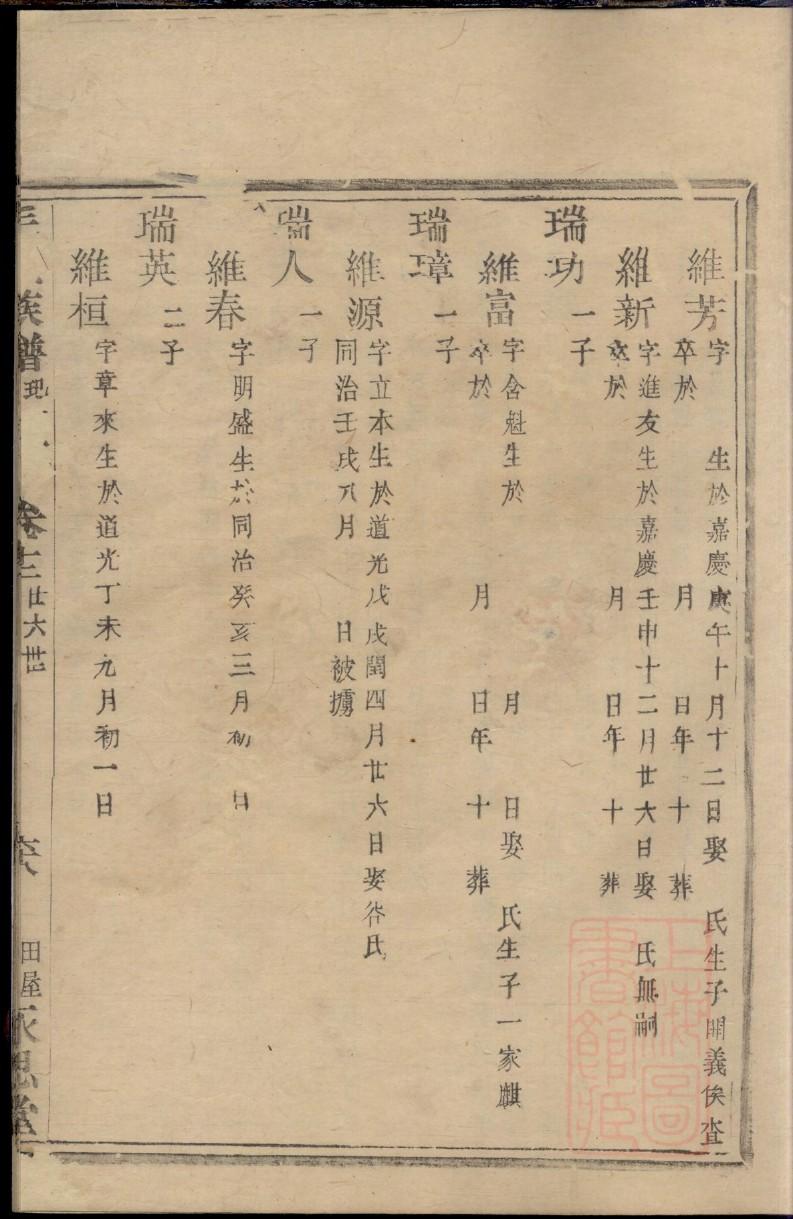 維芳 字 生於嘉慶庚午十月十二日娶 氏生子開義俟查
卒於 月 日年 十 葬
維新 字進友生於嘉慶壬申十二月廿六日娶 氏無嗣
卒於 月 日年 十 葬
瑞功 一子
維富 字含魁生於 月 日娶 氏生子一家麒
卒於 月 日年 十 葬
瑞璋 一子
維源 字立本生於道光戊戌閏四月廿六日娶咎氏
同治壬戌八月 日被擄
瑞人 一子
維春 字明盛生於同治癸亥三月初 日
瑞英 二子
維桓 字章來生於道光丁未九月初一日
族譜 卷十二 廿六世 六 田屋 永思堂
上海圖書館藏